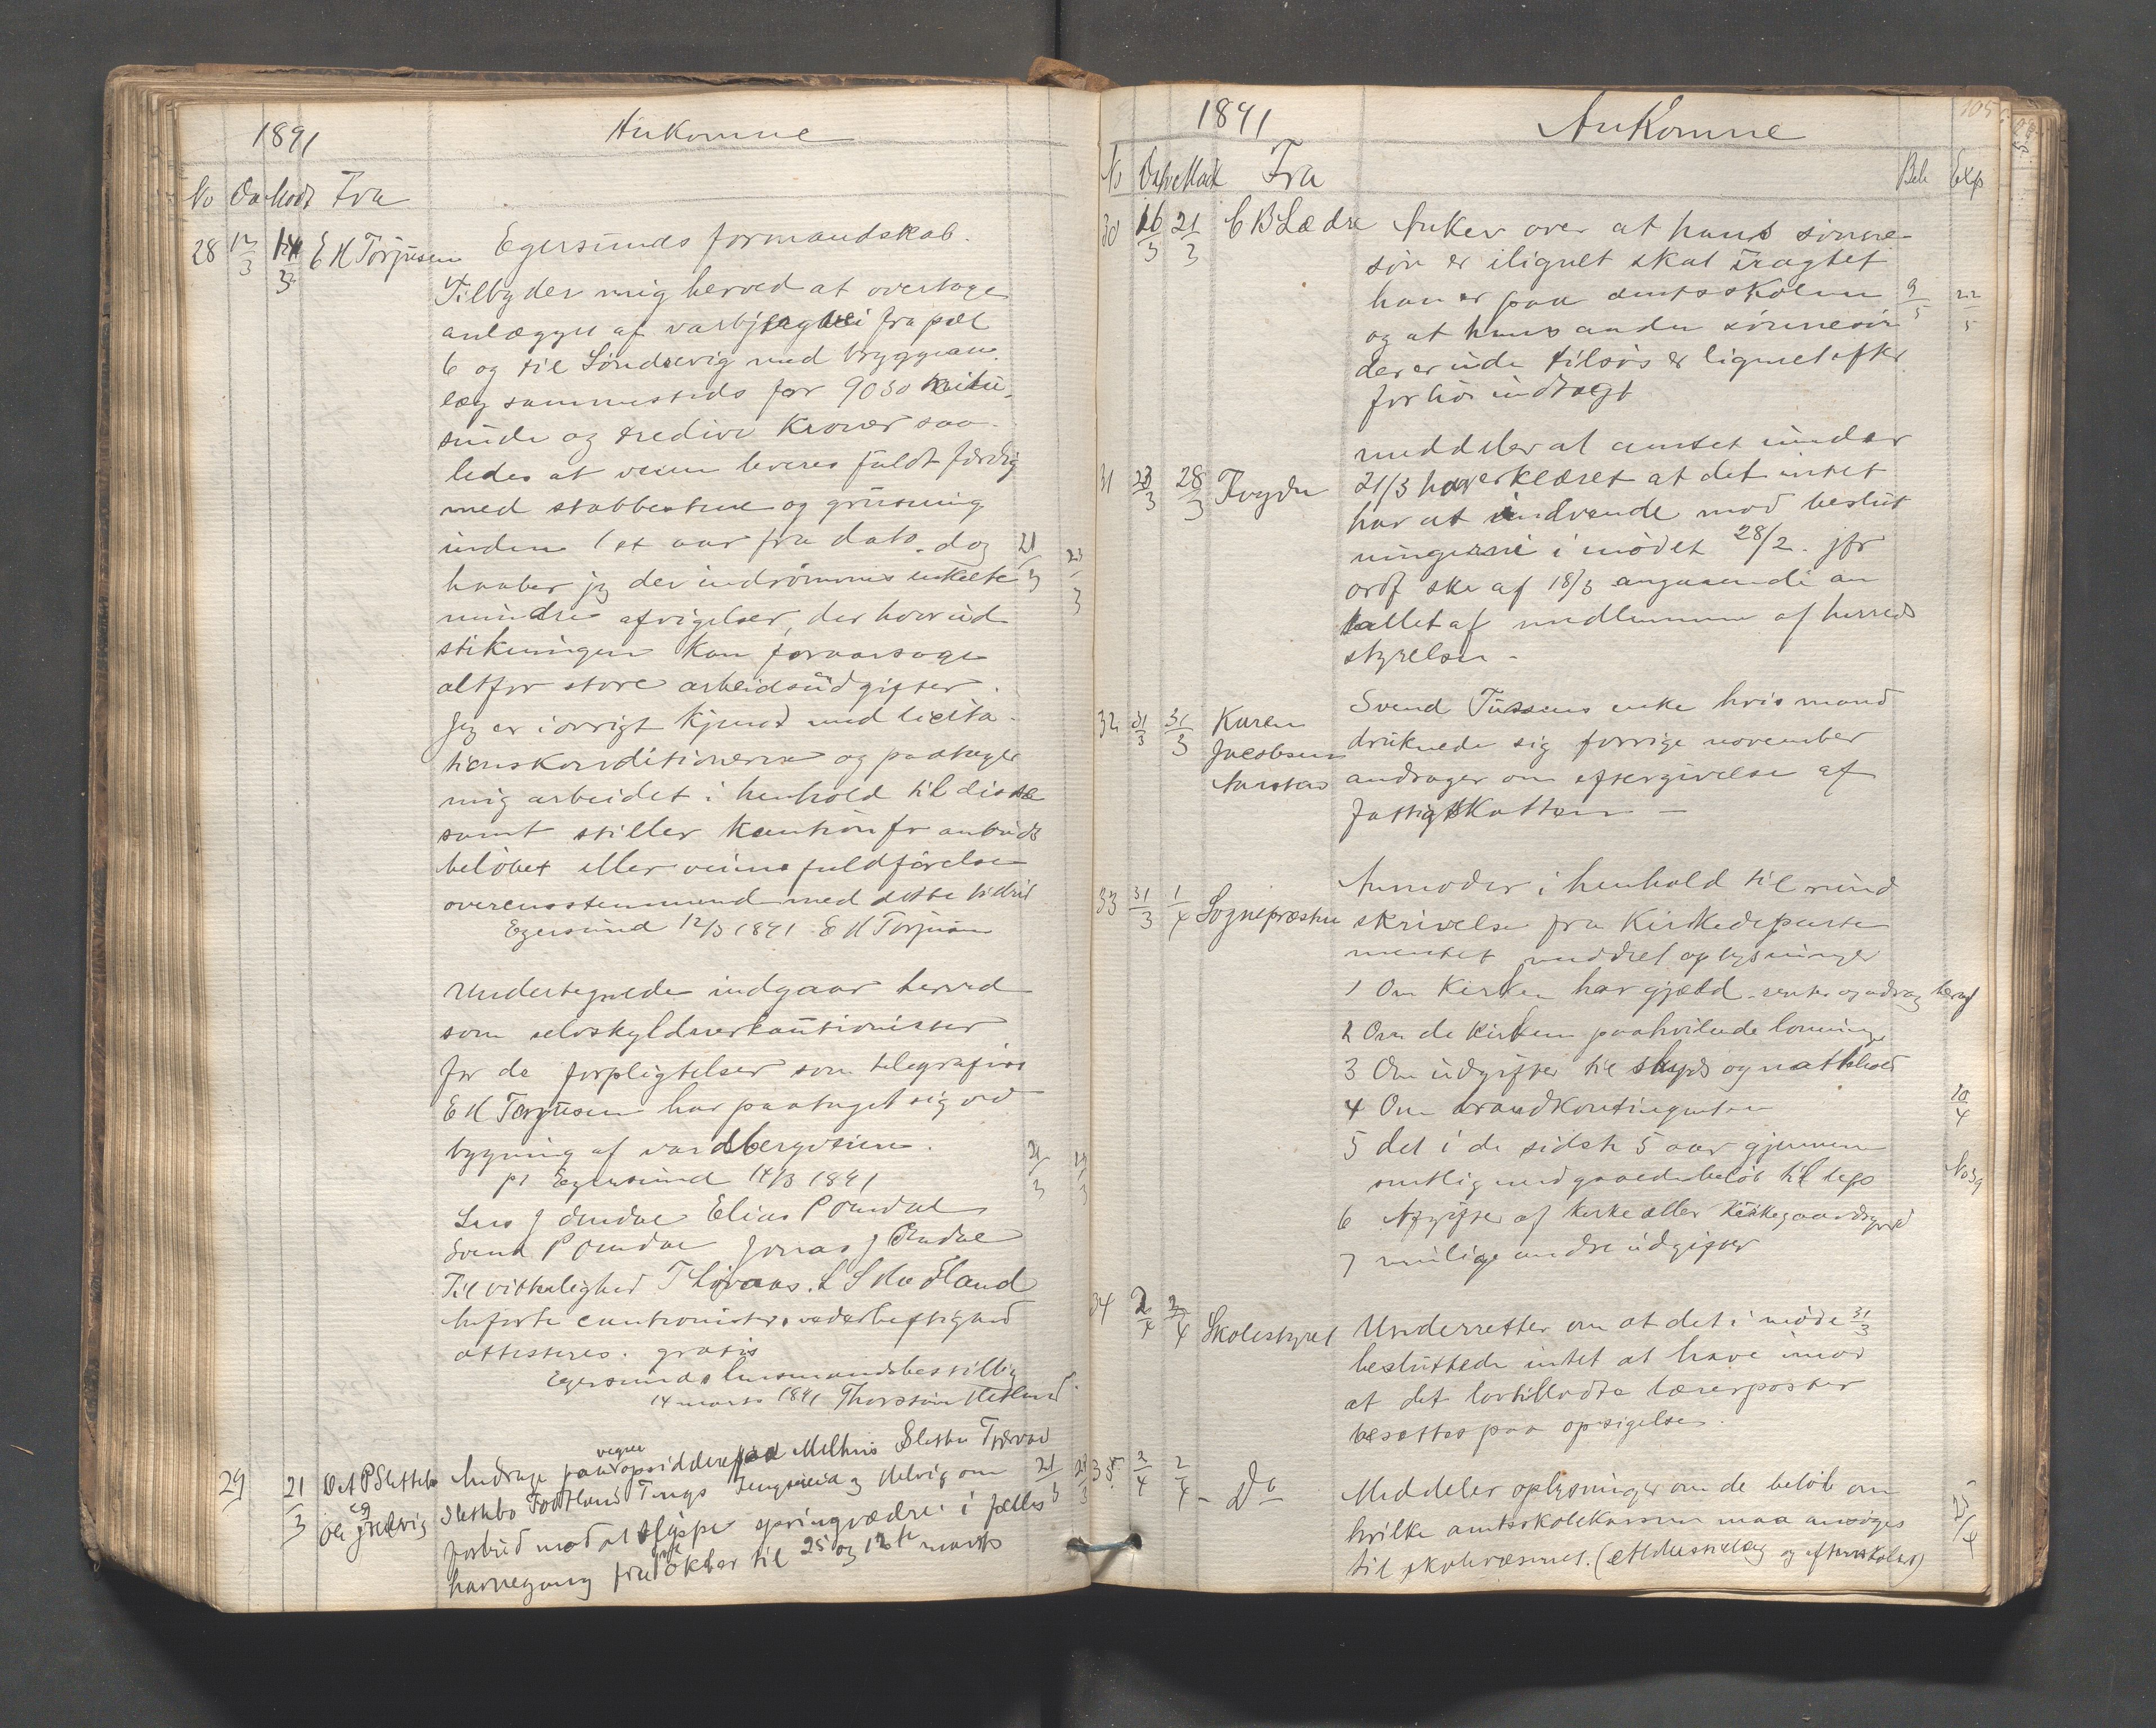 1891 Ankomne
No Da Modt Fra
28 12/3 14/3 E H Torjusen Egersunds formandskab.
Tilbyder mig herved at overtage
anlægget af vei fra pæl
6 og til Söndrevig med bryggean-
læg sammesteds for 9030 nitu-
sinde og tredive Kroner saa-
ledes at veien leveres fuldt færdig
med stabbestene og grusning
inden 1 et aar fra dato. dog 21/3 23/3
haaber jeg der indrømmes enkelte
mindre afvigelser, der hvor ud
stikningen kan foraarsage
altfor store arbeidsudgifter.
Jeg er iøvrigt kjend med licita-
tionskonditionerne og paatager
mig arbeidet i henhold til disse
samt stiller kaution for anbuds
beløbet eller veiens fuldførelse
overensstemmende med dette
Egersund 12/3 1891 E H Torjusen
Undertegnede indgaar herved
som selvskyldnerkautionister
for de forpligtelser som telegrafist
E H Torjusen har paataget sig ved
bygning af vardbergveien. 21/3 23/3
pt Egersund 14/3 1891
Lars J Omdal Elias P Omdal
Svend P Omdal Jonas J Omdal
Til vitterlighed T L S
Anførte cautionisters vederheftighed
attesteres. gratis
Egersunds lensmandsbestilling
14 marts 1891 Thorstein Hetland
29 21/3 O A P Slettebø Andrage paa vegne opsiddere paa Slettebø
og Ole J Helvig Slethebø Tengs Tengsareid og Helvig om 21/3 23/3
forbud mod at slippe springvædre i fælles
havnegang fra 1ste okbter til 25 og 12te marts
1891 Ankomne 105
No Datre Modt Fra Beh Exp
30 16/3 21/3 C B Lædre Anker over at hans sönne-
søn er ilignet skat uagtet
han er paa amtsskolen 9/5 22/5
og at hans anden sönnesön
der er ude tilsös er lignet efter
for höi indtægt
31 23/3 28/3 Fogden meddeler at amtet under
21/3 har erklæret at det intet
har at indvende mod beslut
ningerne i mödet 28/2. jfr
ordf skr af 18/3 angaaende an
tallet af medlemmer af herreds
styrelsen -
32 31/3 31/3 Karen Jacobsen Aarstad Svend enke hvis mand
druknede sig forrige november
andrager om eftergivelse af
fattigskatten -
33 31/3 1/4 Sognepresten Anmoder i henhold til rund
skrivelse fra Kirkedeparte
mentet meddelt oplysninger
1 Om Kirken har gjæld - renter og afdrag heraf
2 Om de Kirken paahvilende lønninger
3 Om udgifter til skyds og nathhold
4 Om brandkontingenten 10/4
5 det i de sidste 5 aar gjennem
snitlig medgaaede beløb til repr No 39
6 Afgifter af Kirke eller Kirkegaardsgrund
7 mulige andre udgifter
34 2/4 2/4 Skolestyret Underretter om at det i möde 31/3
besluttede intet at have imod
at det lovtilladte lærerposter
besættes paa opsigelse.
35 2/4 2/4 - Do Meddeler oplysninger om de beløb om
hvilke amtsskolekassen maa ansöges 25/4
til skolevæsenet. (alderstillæg og aftenskoler)